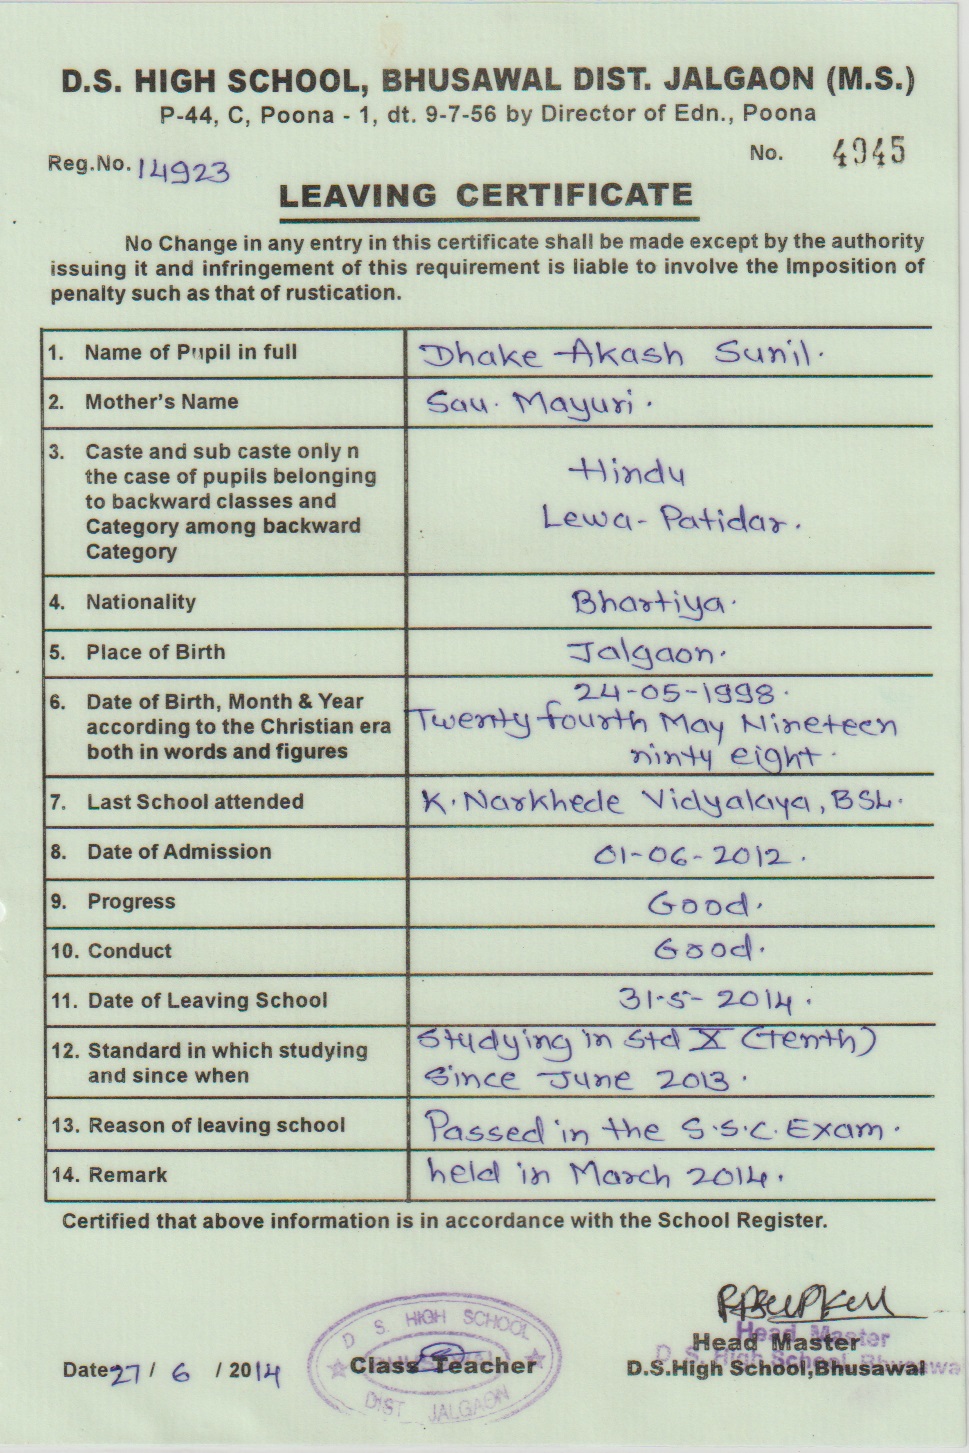 D.S. HIGH SCHOOL, BHUSAWAL DIST. JALGAON (M.S.)
P-44, C, Poona - 1, dt. 9-7-56 by Director of Edn., Poona
Reg.No. 14923 No. 4945
LEAVING CERTIFICATE
No Change in any entry in this certificate shall be made except by the authority
issuing it and infringement of this requirement is liable to involve the Imposition of
penalty such as that of rustication.
1. Name of Pupil in full Dhake Akash Sunil.
2. Mother's Name Sau. Mayuri.
3. Caste and sub caste only n
the case of pupils belonging
to backward classes and
Category among backward
Category
Hindu
Lewa-Patidar.
4. Nationality Bhartiya.
5. Place of Birth Jalgaon.
6. Date of Birth, Month & Year
according to the Christian era
both in words and figures
24-05-1998.
Twenty fourth May Nineteen
ninty eight.
7. Last School attended K. Narkhede Vidyalaya, BSL.
8. Date of Admission 01-06-2012.
9. Progress Good.
10. Conduct Good.
11. Date of Leaving School 31-5-2014.
12. Standard in which studying
and since when
Studying in Std X (Tenth)
Since June 2013.
13. Reason of leaving school Passed in the S.S.C. Exam.
14. Remark held in March 2014.
Certified that above information is in accordance with the School Register.
D. S. HIGH SCHOOL
DIST JALGAON
Head Master
D. S. High School, Bhusawa
Head Master
Date 27 / 6 / 2014 Class Teacher D.S.High School,Bhusawal